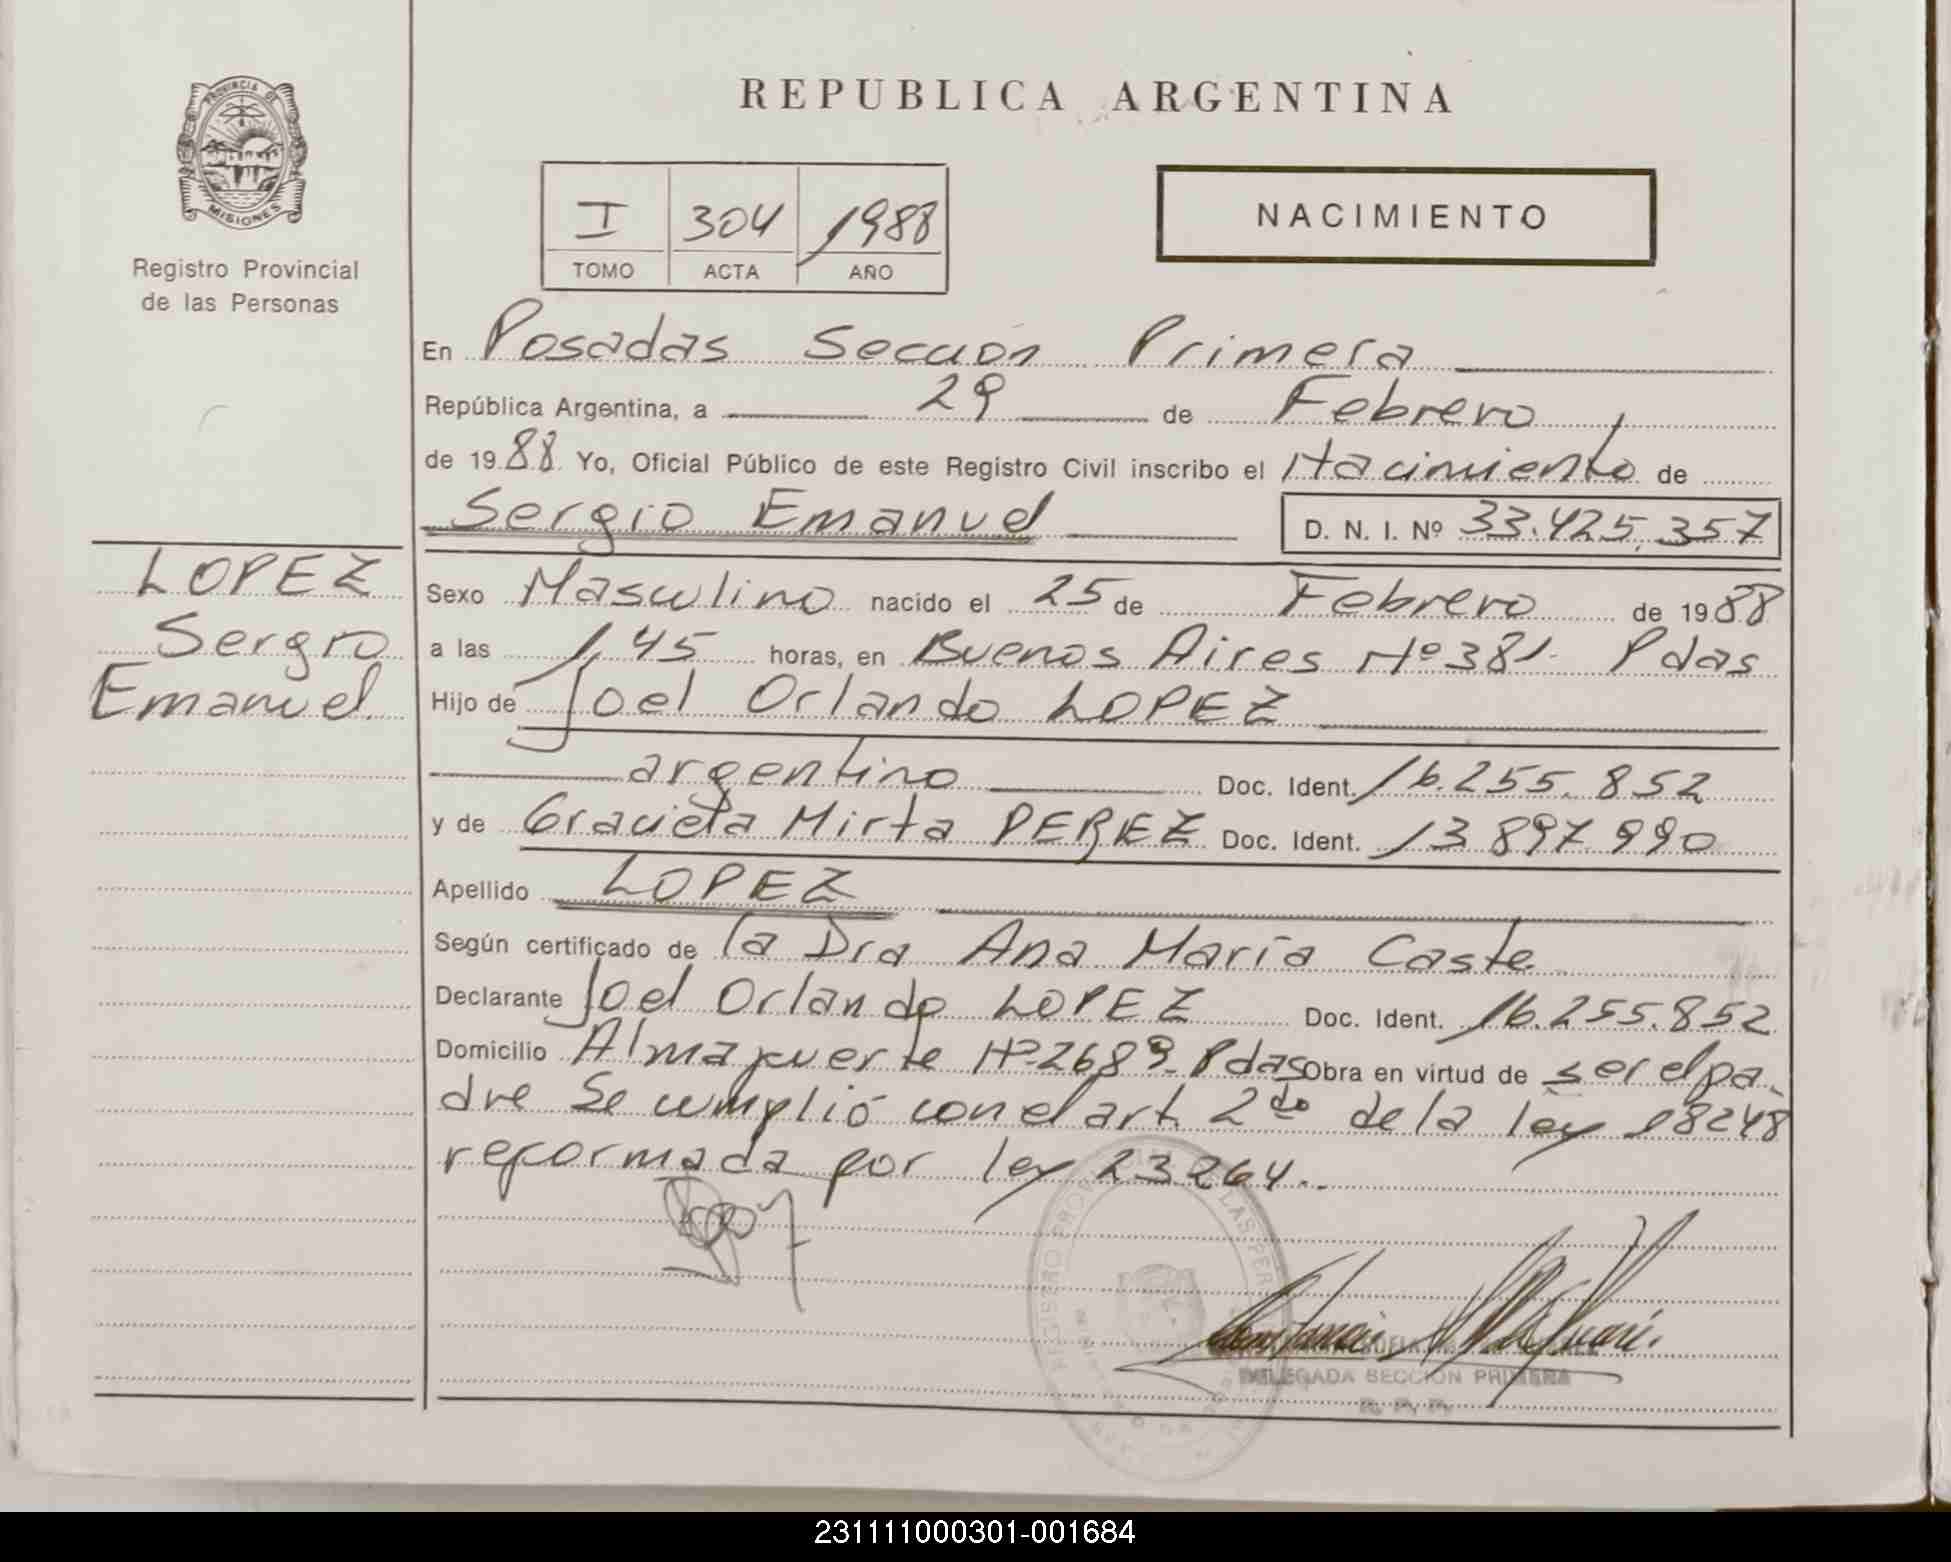 PROVINCIA DE
MISIONES
Registro Provincial
de las Personas
REPUBLICA ARGENTINA
I 304 1988
TOMO ACTA AÑO
NACIMIENTO
En Posadas Sección Primera
República Argentina, a 29 de Febrero
de 1988 Yo, Oficial Público de este Registro Civil inscribo el Nacimiento de
Sergio Emanuel D. N. I. Nº 33.425.357
LOPEZ
Sergio
Emanuel
Sexo Masculino nacido el 25 de Febrero de 1988
a las 1,45 horas, en Buenos Aires Nº 381. Pdas
Hijo de Joel Orlando LOPEZ
argentino Doc. Ident. 16.255.852
y de Graciela Mirta PEREZ Doc. Ident. 13.897.990
Apellido LOPEZ
Según certificado de la Dra Ana María Caste
Declarante Joel Orlando LOPEZ Doc. Ident. 16.255.852
Domicilio Almafuerte Nº 2689. Pdas Obra en virtud de ser el pa-
dre Se cumplió con el art. 2do de la ley 18248
reformada por ley 23264..
DELEGADA SECCION PRIMERA
R. P. P.
231111000301-001684